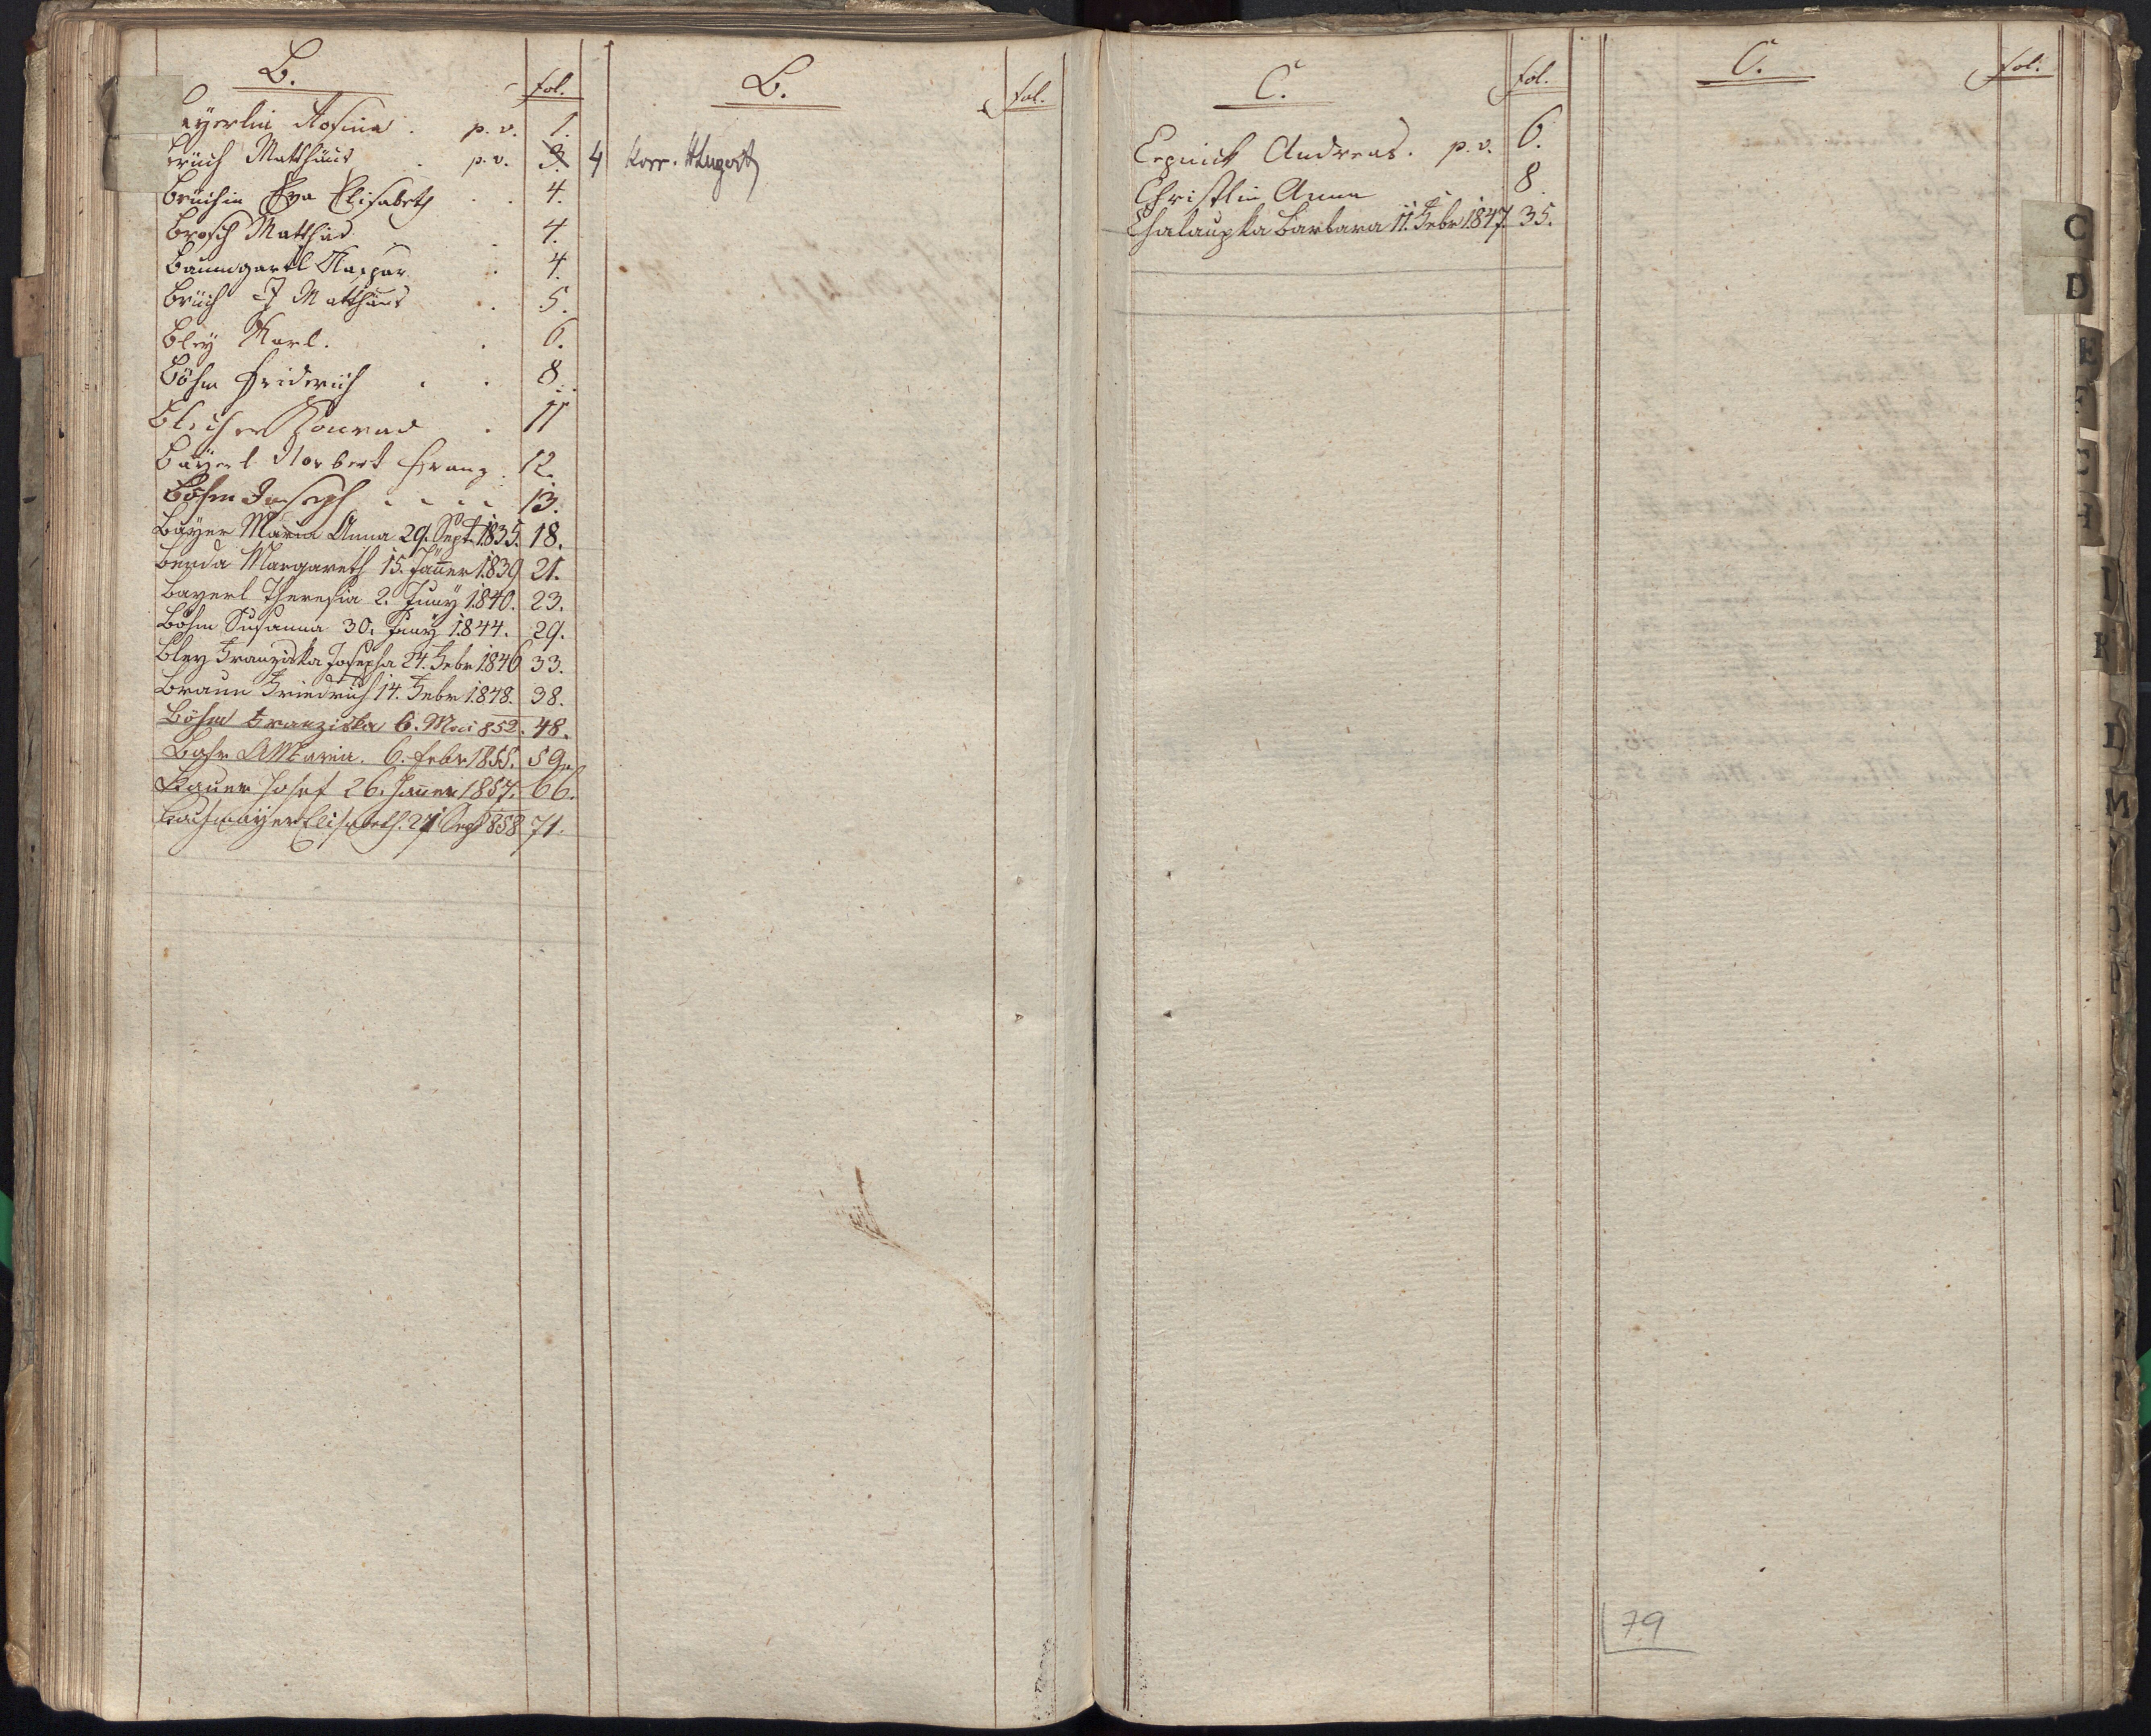 B. fol.
eyerlin Rosina. p. v. 1.
brüch Matthäus . p. v. 3. 4 Korr.
Brüchin Eva Elisabeth . . 4.
Brosch Matthias . 4.
Baumgartl Kaspar . 4.
Brüch J Matthäus . 5.
Bley Karl. . 6.
Böhm Friderich . . 8
Bleicher Konrad . 11
Bayerl Norbert Franz . 12.
Böhm Joseph . . . . 13.
Bayer Maria Anna 29. Sept. 1835. 18.
Benda Margareth 15. Jänner 1839 21.
Bayerl Theresia 2. Juny 1840. 23.
Böhm Susanna 30. Juny 1844. 29.
Bley Franziska Josepha 24. Febr 1846 33.
Braun Friedrich 14. Febr 1848. 38.
Böhm Franziska 6. Mai 852. 48.
Maria. 6. Febr 1855. 59.
Bauer Josef 26. Jänner 1857. 66.
Elisabeth. 27 Sep 858 71.
B. fol.
C. fol.
Andreas. p. v. 6.
Christlin Anna 8
Chalaupka Barbara 11. Febr 1847. 35.
C. fol.
79
C
D
E
F
G
H
I
K
L
M